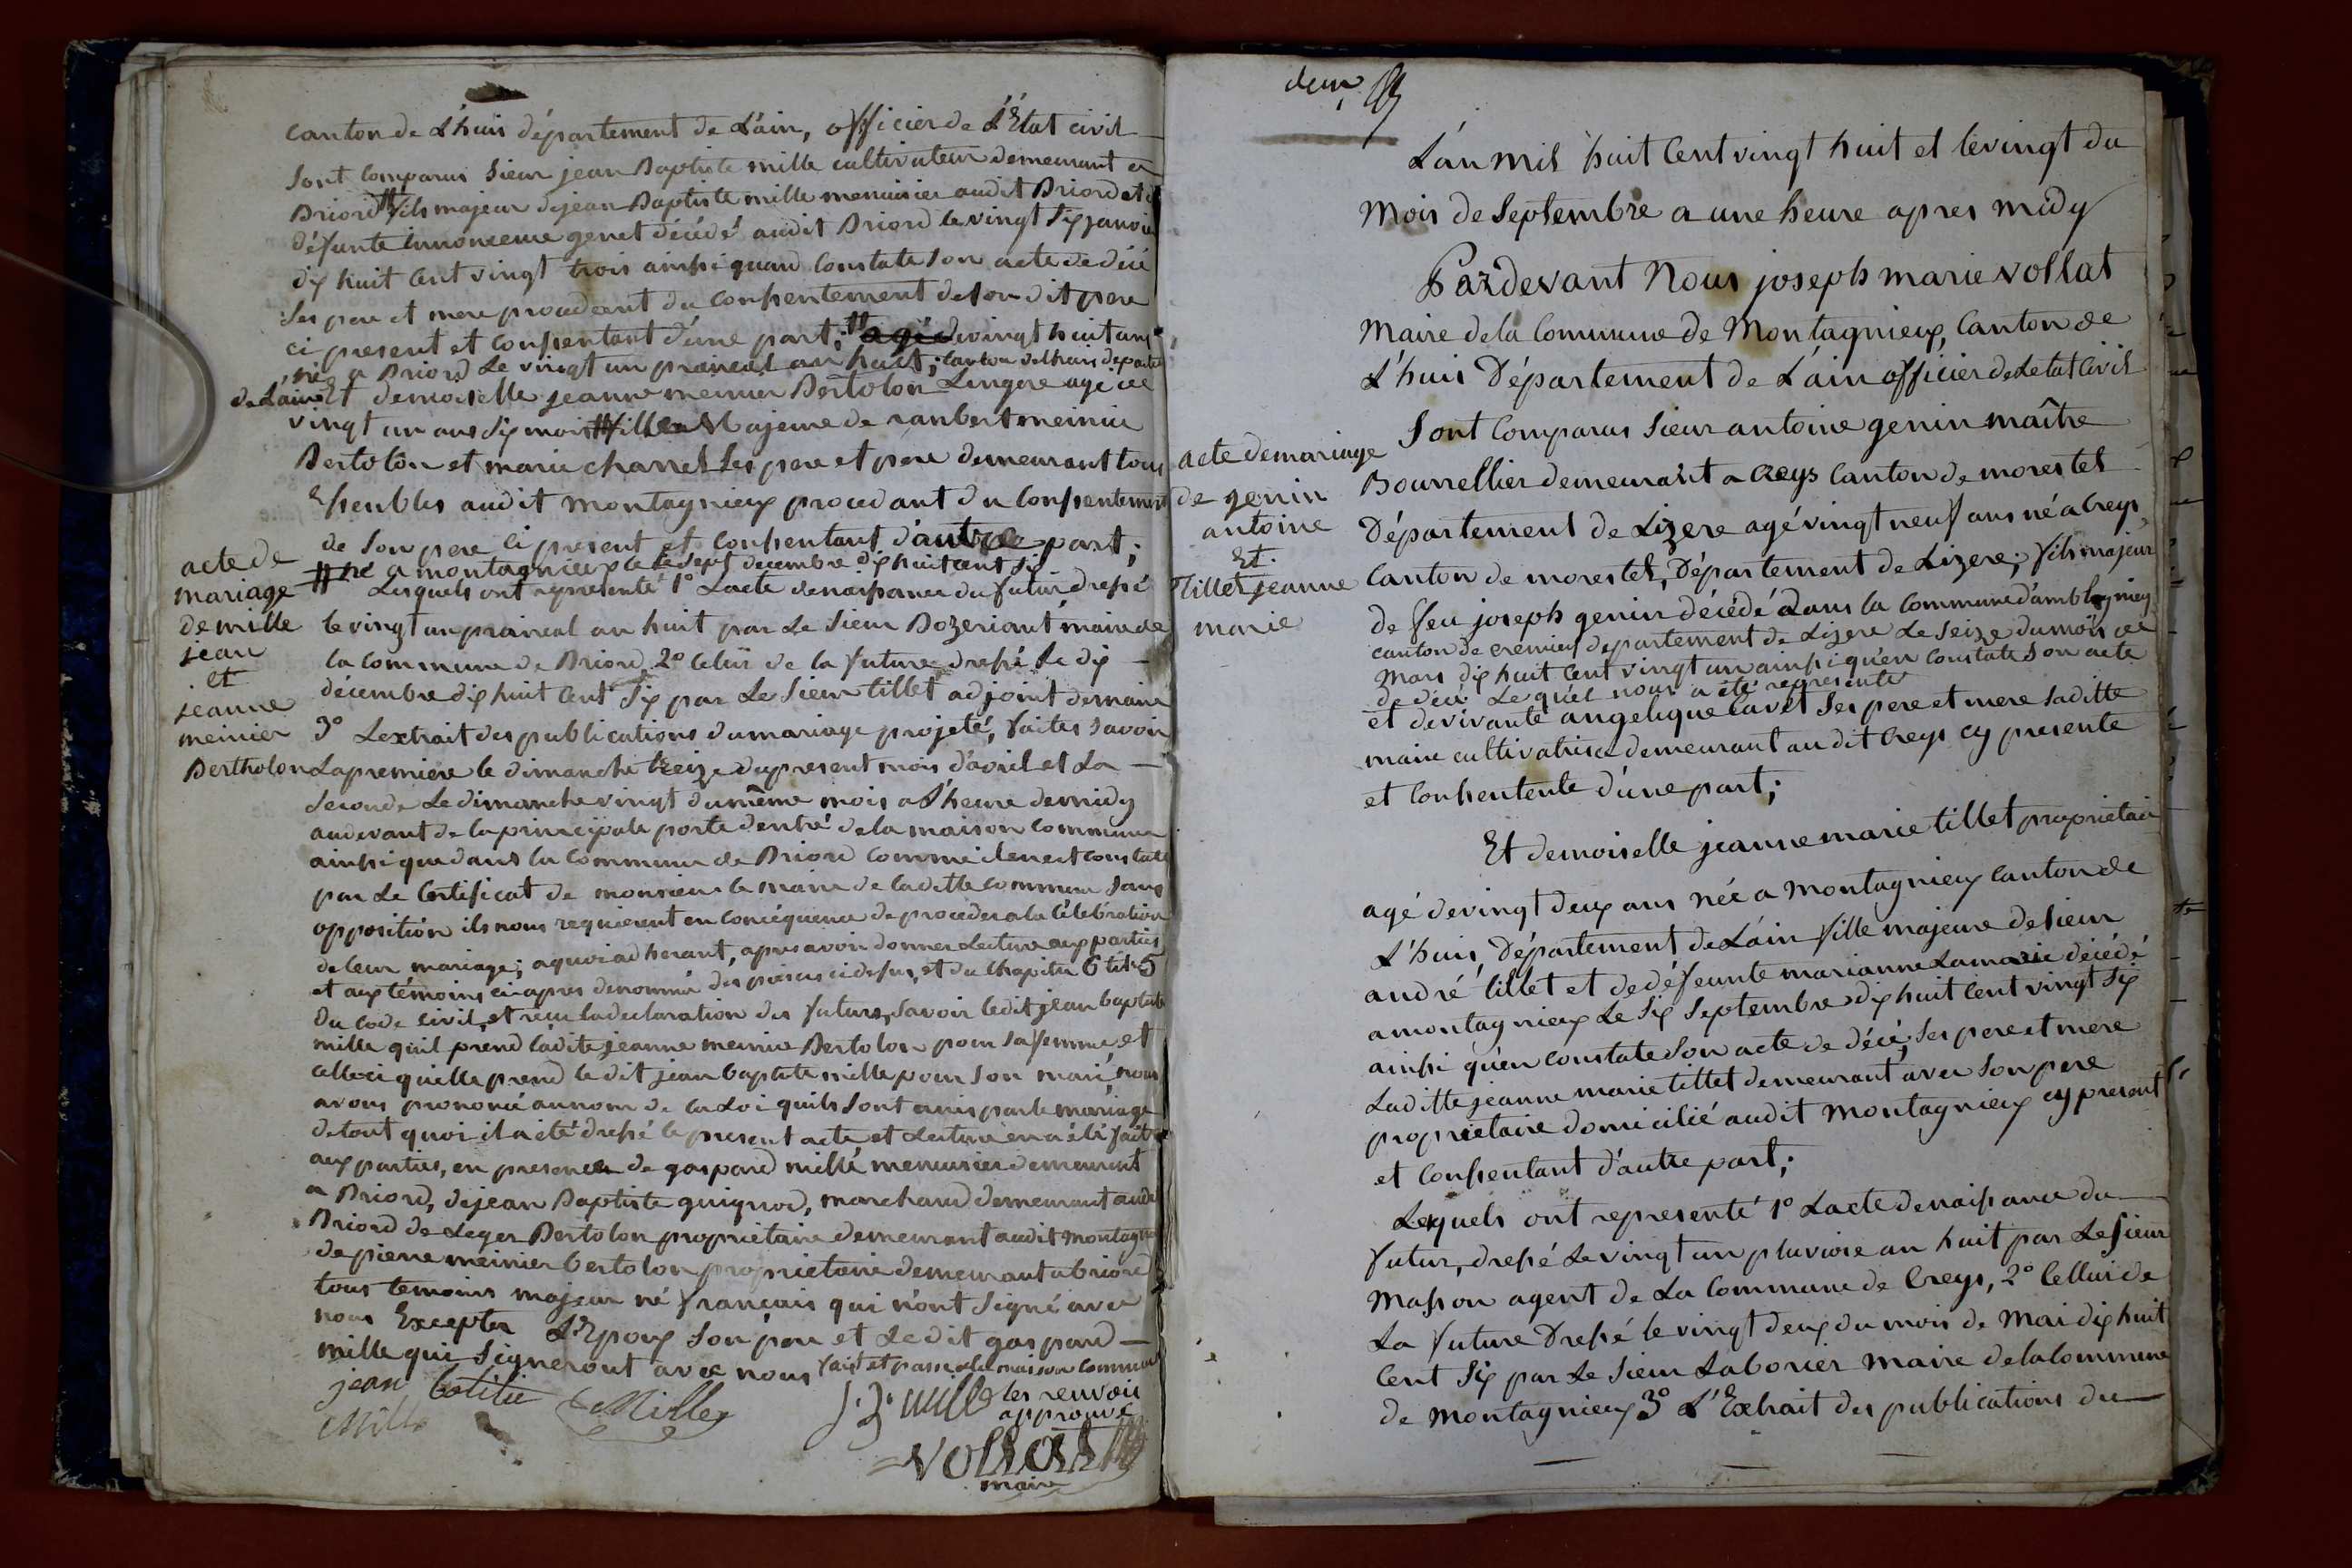 canton de L'huis département de L'ain, officier de L'Etat civil
Sont Comparus Sieur jean Baptiste mille cultivateur demeurant a
Briord # fils majeur de jean Baptiste mille menuisier audit Briord et de
défunte innoncence genet décédé audit Briord le vingt Six janvier
dix huit Cent vingt trois ainsi quand Constate Son acte de décé
Ses pere et mere procedant du Consentement de Son dit pere
ci present et Consentant d'une part; # agé de vingt huit ans
né a Briord Le vingt un prairial an huit; Canton de lhuis departe
de Lain Et demoiselle jeanne menier Bertolon Lingere agé de
vingt un ans Six mois # fille Majeure de rambert meinier
Bertolon et marie charrel Ses pere et pere demeurant tous
Ensenbles audit montagnieux procedant du Consentement
de Son pere ci present et Consentant d'autre part;
# né a montagnieux le sept decembre dix huit cent Six
Lesquels ont representé 1° Lacte denaissance du futur dressé
le vingt un prairial an huit par Le Sieur Bozeriant maire de
la Commune de Briord, 2° Celui de la future dressé Le dix
décembre dix huit Cent Six par Le Sieur tillet adjoint demaire
3° Lextrait des publications du mariage projeté, faites Savoir
Lapremiere le dimanche treize dupresent mois d'avril et La
Seconde Le dimanche vingt du même mois a L'heure demidy
audevant de laprincipale porte dentré dela maison Commune
ainsi que dans la Commune de Briord comme ilenest constaté
par Le Certificat de monsieur le maire de laditte Commune Sans
opposition ils nous requierent en Conséquence de proceder a la Célébration
de leur mariage; aquoi adherant, apres avoir donner Lecture aux parties
et aux témoins ci-apres denommé des pieces ci dessus, et du Chapitre 6 titre 5
Du Code Civil, et reçu la declaration des futurs, Savoir ledit jean baptiste
mille quil prend ladite jeanne meinier Bertolon pour Sa femme, et
celleci quelle prend le dit jean baptiste mille pour Son mari, nous
avons prononcé aunom de la Loi quils Sont unis par le mariage
detout quoi il a été dressé le present acte et Lecture en a été faite
aux parties, en presence de gaspard mille menuisier demeurant
a Briord, de jean Baptiste guignod, marchand demeurant audit
Briord de Leger Bertolon proprietaire demeurant audit montagnieux
de pierre meinier bertolon proprietaire demeurant a briord
tous temoins majeur né français qui n'ont Signé avec
nous Excepter L'Epoux Son pere et Le dit gaspard
mille qui Signeront avec nous fait et passé a la maison commune
jean Batiste
Mille
Mille
J. B. mille les renvoir
approuvé
Vollat
maire
acte de
mariage
de mille
jean
et
jeanne
meinier
Bertholon
deux
L'an mil huit Cent vingt huit et le vingt du
mois de Septembre a une heure apres midy
Pardevant Nous joseph marie vollat
Maire dela Commune de Montagnieux, Canton de
L'huis Département de L'ain officier deLetat Civil
Sont Comparus Sieur antoine genin maître
Bourrellier demeurant a Creys Canton de morestel
Département de Lizere agé vingt neuf ans né a Creys
Canton de morestel, Département de Lizere; fils majeur
de feu joseph genin décédé dans la Commune d'amblagnieux
canton de cremieu département de Lizere Le Seize du mois de
Mars dix huit Cent vingt un ainsi qu'en constate Son acte
de décé Lequel nous a été representé
et devivante angelique Cavet Ses pere et mere Saditte
maire cultivatrice demeurant au dit Creys cy presente
et Consentente d'une part;
Et demoiselle jeanne marie tillet proprietaire
agé devingt deux ans née a Montagnieux Canton de
L'huis, Département de L'ain fille majeure de Sieur
andré tillet et de défeunte marianne Lamarie décédé
amontagnieux Le Six Septembre dix huit Cent vingt Six
ainsi qu'en constate Son acte de décé; Ses pere et mere
Laditte jeanne marie tillet demeurant avec Son pere
proprietaire domicilié audit Montagnieux cy present
et Consentant d'autre part;
Lesquels ont representé 1° Lacte denaissance du
futur, dressé Le vingt un pluviose an huit par Le Sieur
Masson agent de La Commune de Creys, 2° Celluide
La future Dressé le vingt deux du mois de Mai dix huit
Cent Six par Le Sieur Laborier Maire dela Commune
de Montagnieux 3° L'Extrait des publications du
acte de mariage
de genin
antoine
Et
Tillet jeanne
marie